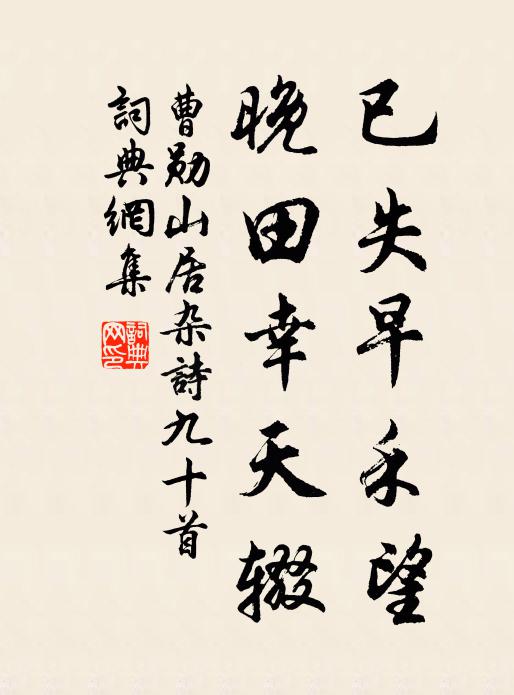 已失早禾望
晚田幸天辍
曹勋山居杂詩九十首
詞典網集
詞典网印